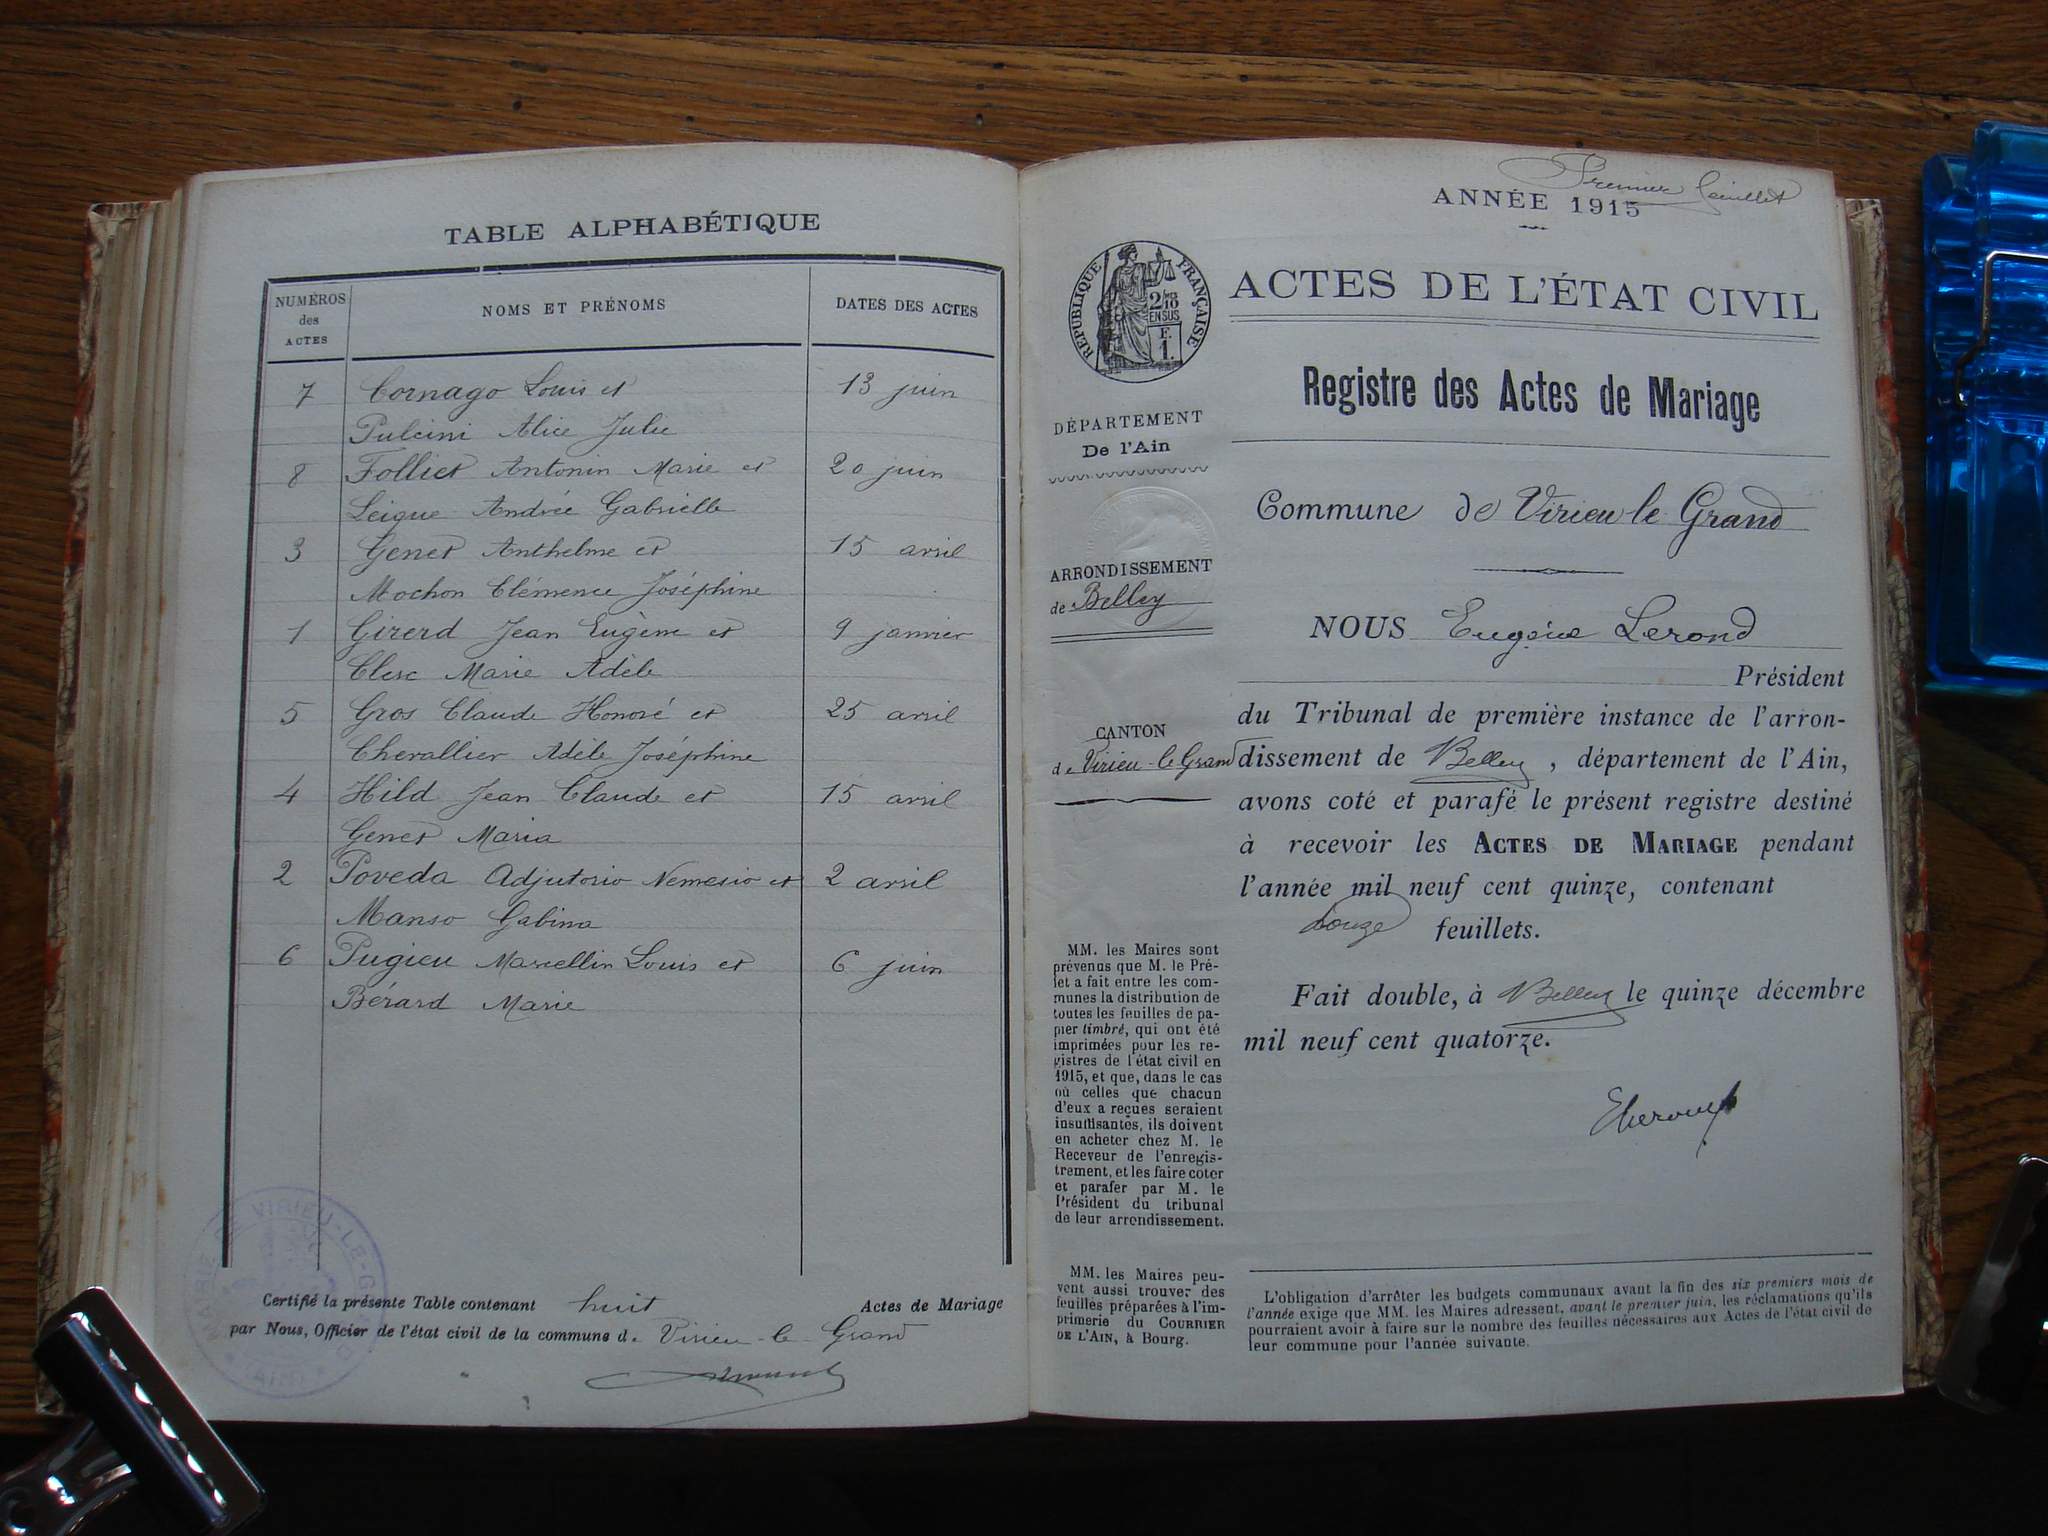 TABLE ALPHABÉTIQUE
NUMÉROS des ACTES
NOMS ET PRÉNOMS
DATES DES ACTES
7 Cornago Louis et 13 juin
Pulcini Alice Julie
8 Folliet Antonin Marie et 20 juin
Leique Andrée Gabrielle
3 Genet Anthelme et 15 avril
Mochon Clémence Joséphine
1 Girerd Jean Eugène et 9 janvier
Clerc Marie Adèle
5 Gros Claude Honoré et 25 avril
Chevallier Adèle Joséphine
4 Hild Jean Claude et 15 avril
Genet Maria
2 Poveda Adjutorio Nemesio et 2 avril
Manso Gabina
6 Pugieu Marcellin Louis et 6 juin
Bérard Marie
MAIRIE DE VIRIEU-LE-GRAND
(AIN)
Certifié la présente Table contenant huit Actes de Mariage
par Nous, Officier de l'état civil de la commune de Virieu-le-Grand
Premier feuillet
ANNÉE 1915
RÉPUBLIQUE FRANÇAISE
2/10
EN SUS
F.
1.
ACTES DE L'ÉTAT CIVIL
Registre des Actes de Mariage
DÉPARTEMENT
De l'Ain
ARRONDISSEMENT
de Belley
CANTON
de Virieu-le-Grand
Commune de Virieu le Grand
NOUS Eugène Lerond
Président
du Tribunal de première instance de l'arron-
dissement de Belley, département de l'Ain,
avons coté et parafé le présent registre destiné
à recevoir les ACTES DE MARIAGE pendant
l'année mil neuf cent quinze, contenant
douze feuillets.
Fait double, à Belley le quinze décembre
mil neuf cent quatorze.
MM. les Maires sont
prévenus que M. le Pré-
fet a fait entre les com-
munes la distribution de
toutes les feuilles de pa-
pier timbré, qui ont été
imprimées pour les re-
gistres de l'état civil en
1915, et que, dans le cas
où celles que chacun
d'eux a reçues seraient
insuffisantes, ils doivent
en acheter chez M. le
Receveur de l'enregis-
trement, et les faire coter
et parafer par M. le
Président du tribunal
de leur arrondissement.
MM. les Maires peu-
vent aussi trouver des
feuilles préparées à l'im-
primerie du COURRIER
DE L'AIN, à Bourg.
L'obligation d'arrêter les budgets communaux avant la fin des six premiers mois de
l'année exige que MM. les Maires adressent, avant le premier juin, les réclamations qu'ils
pourraient avoir à faire sur le nombre des feuilles nécessaires aux Actes de l'état civil de
leur commune pour l'année suivante.